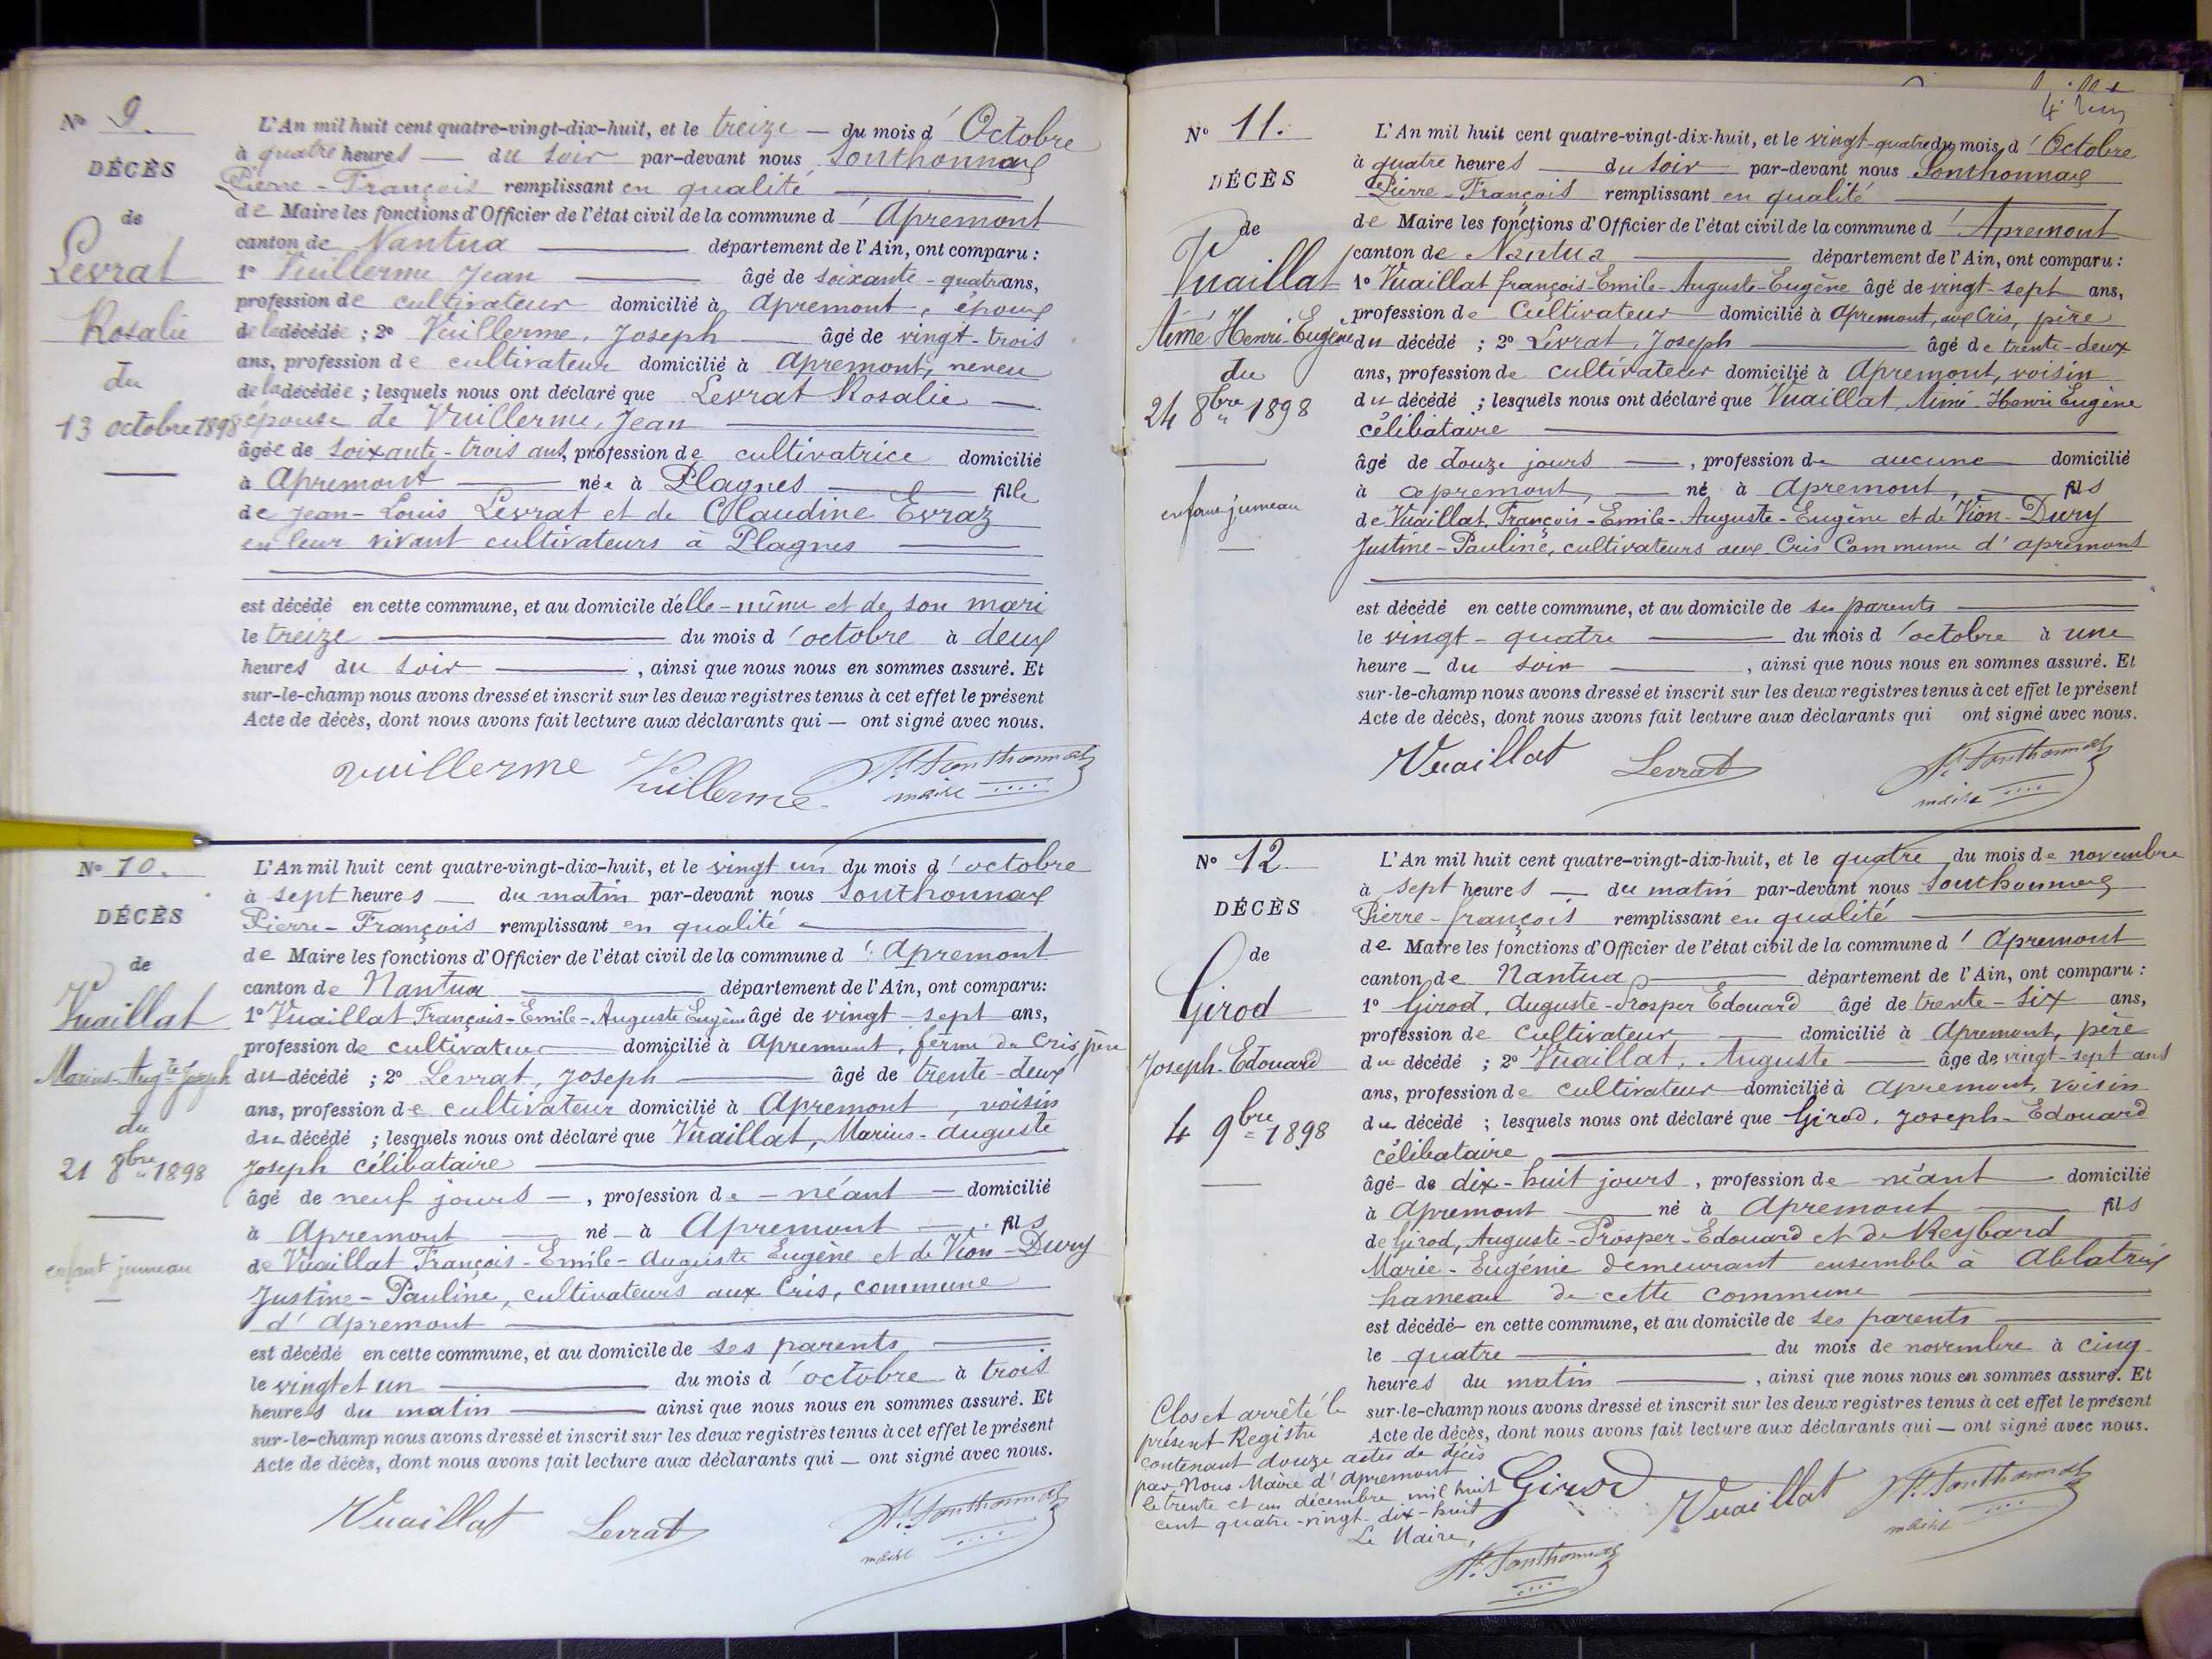 Nº 9.
DÉCÈS
de
Levrat
Rosalie
du
13 octobre 1898
L'An mil huit cent quatre-vingt-dix-huit, et le treize — du mois d'Octobre
à quatre heures — du soir par-devant nous Sonthonnax
Pierre-François remplissant en qualité
de Maire les fonctions d'Officier de l'état civil de la commune d'Apremont
canton de Nantua — département de l'Ain, ont comparu :
1º Vuillerme Jean — âgé de soixante-quatre ans,
profession de cultivateur domicilié à Apremont, époux
de la décédée ; 2º Vuillerme, Joseph — âgé de vingt-trois
ans, profession de cultivateur domicilié à Apremont, neveu
de la décédée ; lesquels nous ont déclaré que Levrat Rosalie —
épouse de Vuillerme, Jean
âgée de soixante-trois ans, profession de cultivatrice domicilié
à Apremont — née à Plagnes — fille
de Jean-Louis Levrat et de Claudine Evraz
en leur vivant cultivateurs à Plagnes
est décédé en cette commune, et au domicile d'elle-même et de son mari
le treize — du mois d'octobre à deux
heures du soir — , ainsi que nous nous en sommes assuré. Et
sur-le-champ nous avons dressé et inscrit sur les deux registres tenus à cet effet le présent
Acte de décès, dont nous avons fait lecture aux déclarants qui — ont signé avec nous.
Vuillerme Vuillerme Sonthonnax
maire
Nº 10.
DÉCÈS
de
Vuaillat
Marius-Augte Joseph
du
21 8bre 1898
enfant jumeau
L'An mil huit cent quatre-vingt-dix-huit, et le vingt un du mois d'octobre
à sept heures — du matin par-devant nous Sonthonnax
Pierre-François remplissant en qualité
de Maire les fonctions d'Officier de l'état civil de la commune d'Apremont
canton de Nantua — département de l'Ain, ont comparu :
1º Vuaillat François-Emile-Auguste Eugène âgé de vingt-sept ans,
profession de cultivateur — domicilié à Apremont, ferme de Cris, père
du décédé ; 2º Levrat, Joseph — âgé de trente-deux
ans, profession de cultivateur domicilié à Apremont, voisin
du décédé ; lesquels nous ont déclaré que Vuaillat, Marius-Auguste
Joseph célibataire
âgé de neuf jours — , profession de — néant — domicilié
à Apremont — né à Apremont — fils
de Vuaillat François-Emile-Auguste Eugène et de Vion-Dury
Justine-Pauline, cultivateurs aux Cris, commune
d'Apremont
est décédé en cette commune, et au domicile de ses parents
le vingt et un — du mois d'octobre à trois
heures du matin — ainsi que nous nous en sommes assuré. Et
sur-le-champ nous avons dressé et inscrit sur les deux registres tenus à cet effet le présent
Acte de décès, dont nous avons fait lecture aux déclarants qui — ont signé avec nous.
Vuaillat Levrat Sonthonnax
maire
Nº 11.
DÉCÈS
de
Vuaillat
Aimé Henri-Eugène
du
24 8bre 1898
enfant jumeau
L'An mil huit cent quatre-vingt-dix-huit, et le vingt-quatre du mois d'Octobre
à quatre heures — du soir — par-devant nous Sonthonnax
Pierre-François remplissant en qualité
de Maire les fonctions d'Officier de l'état civil de la commune d'Apremont
canton de Nantua — département de l'Ain, ont comparu :
1º Vuaillat françois-Emile-Auguste-Eugène âgé de vingt-sept ans,
profession de Cultivateur — domicilié à Apremont, aux Cris, père
du décédé ; 2º Levrat, Joseph — âgé de trente-deux
ans, profession de cultivateur domicilié à Apremont, voisin
du décédé ; lesquels nous ont déclaré que Vuaillat, Aimé-Henri Eugène
célibataire
âgé de douze jours — , profession de aucune domicilié
à apremont, — né à Apremont, — fils
de Vuaillat, François-Emile-Auguste-Eugène et de Vion-Dury
Justine-Pauline, cultivateurs aux Cris Commune d'apremont
est décédé en cette commune, et au domicile de ses parents
le vingt-quatre — du mois d'octobre à une
heure — du soir — , ainsi que nous nous en sommes assuré. Et
sur-le-champ nous avons dressé et inscrit sur les deux registres tenus à cet effet le présent
Acte de décès, dont nous avons fait lecture aux déclarants qui ont signé avec nous.
Vuaillat Levrat Sonthonnax
maire
Nº 12
DÉCÈS
de
Girod
Joseph-Edouard
4 9bre 1898
L'An mil huit cent quatre-vingt-dix-huit, et le quatre du mois de novembre
à sept heures — du matin par-devant nous Sonthonnax
Pierre-françois remplissant en qualité
de Maire les fonctions d'Officier de l'état civil de la commune d'Apremont
canton de Nantua — département de l'Ain, ont comparu :
1º Girod, Auguste-Prosper Edouard âgé de trente-six ans,
profession de Cultivateur — domicilié à Apremont, père
du décédé ; 2º Vuaillat, Auguste — âgé de vingt-sept ans
ans, profession de cultivateur domicilié à Apremont, voisin
du décédé ; lesquels nous ont déclaré que Girod, Joseph-Edouard
célibataire
âgé de dix-huit jours , profession de néant — domicilié
à Apremont — né à Apremont — fils
de Girod, Auguste-Prosper-Edouard et de Reybard
Marie-Eugénie demeurant ensemble à Ablatrix
hameau de cette commune
est décédé en cette commune, et au domicile de ses parents
le quatre — du mois de novembre à cinq
heures du matin — , ainsi que nous nous en sommes assuré. Et
sur-le-champ nous avons dressé et inscrit sur les deux registres tenus à cet effet le présent
Acte de décès, dont nous avons fait lecture aux déclarants qui — ont signé avec nous.
Girod Vuaillat Sonthonnax
maire
Clos et arrêté le
présent Registre
contenant douze actes de décès
par Nous Maire d'Apremont
le trente et un décembre mil huit
cent quatre-vingt-dix-huit
Le Maire,
Sonthonnax